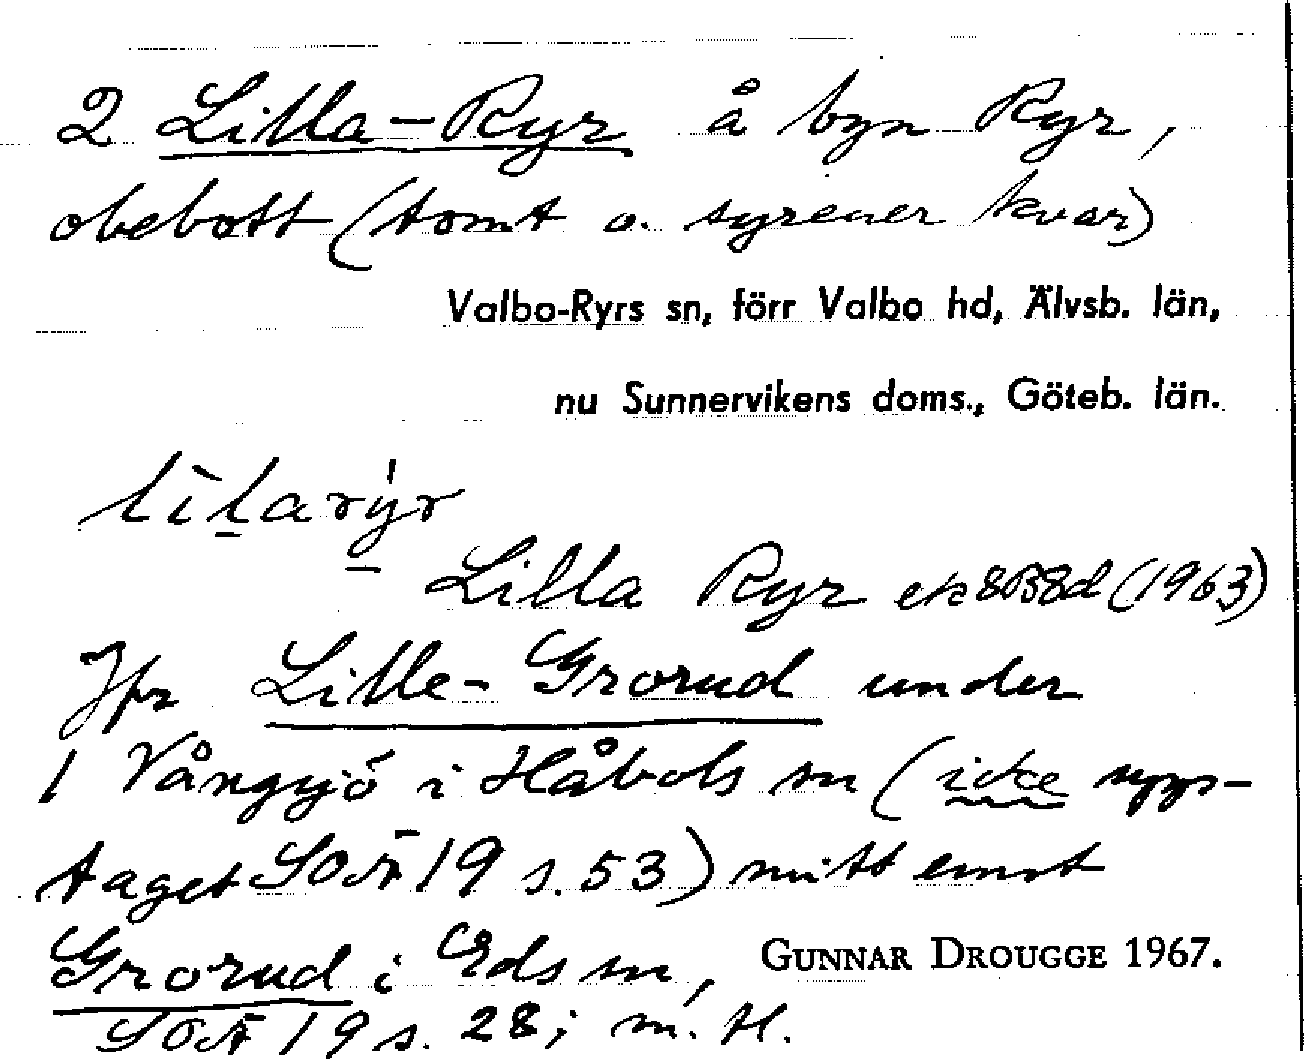 2 Lilla-Ryr å byn Ryr,
obebott (tomt o. syrener kvar)
Valbo-Ryrs sn, förr Valbo hd, Älvsb. län,
nu Sunnervikens doms., Göteb. län.
lilarýr
Lilla Ryr ek 8B8d (1963)
Jfr Lille-Grorud under
1 Vångsjö i Håbols sn (icke upp-
taget SOÄ 19 s. 53) mitt emot
Grorud i Eds sn,
GUNNAR DROUGGE 1967.
SOÄ 19 s. 28; m. H.